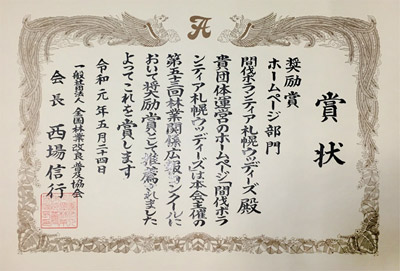 賞状
奨励賞
ホームページ部門
間伐ボランティア札幌ウッディーズ殿
貴団体運営のホームページ「間伐ボラ
ンティア札幌ウッディーズ」は本会主催の
第五十三回林業関係広報コンクールに
おいて奨励賞として推薦されました
よってこれを賞します
令和元年五月二十四日
一般社団法人 全国林業改良普及協会
会長 西場信行